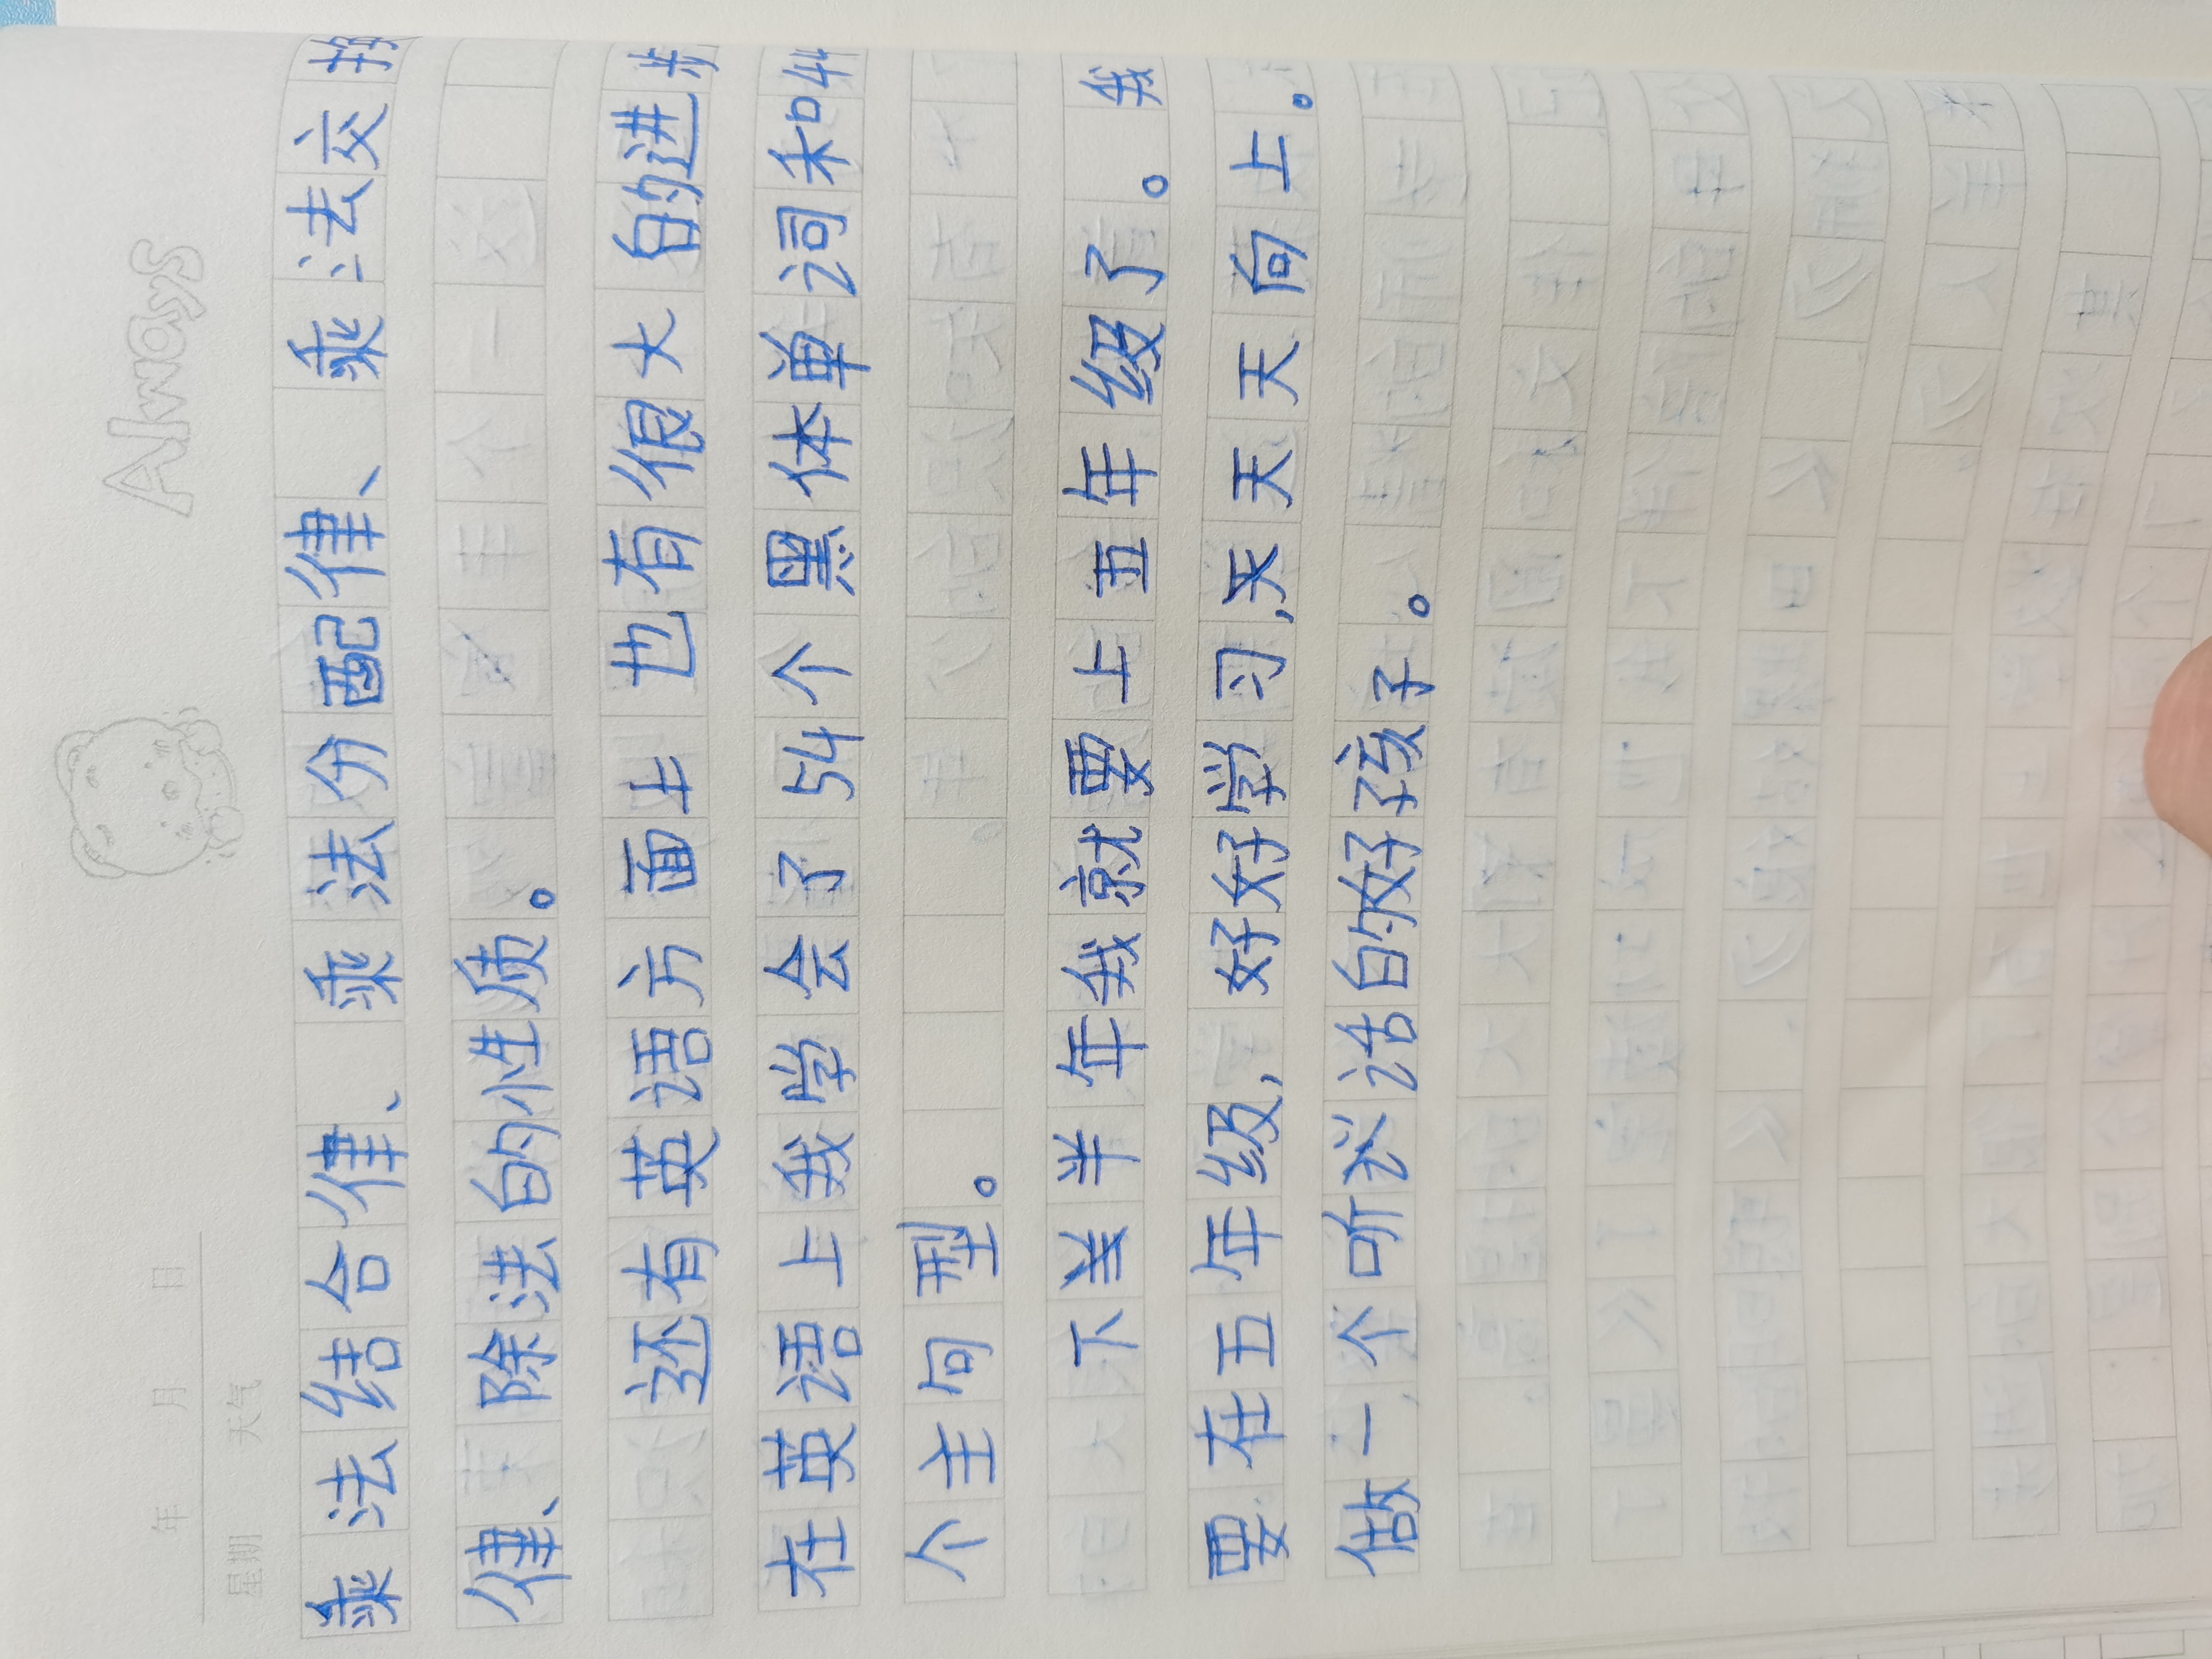 Always
年 月 日
星期 天气
乘法结合律、乘法分配律、乘法交换
律、除法的性质。
还有英语方面上也有很大的进步
在英语上我学会了54个黑体单词和44
个主句型。
下半年我就要上五年级了。我
要在五年级,好好学习,天天天向上。
做一个听话的好孩子。